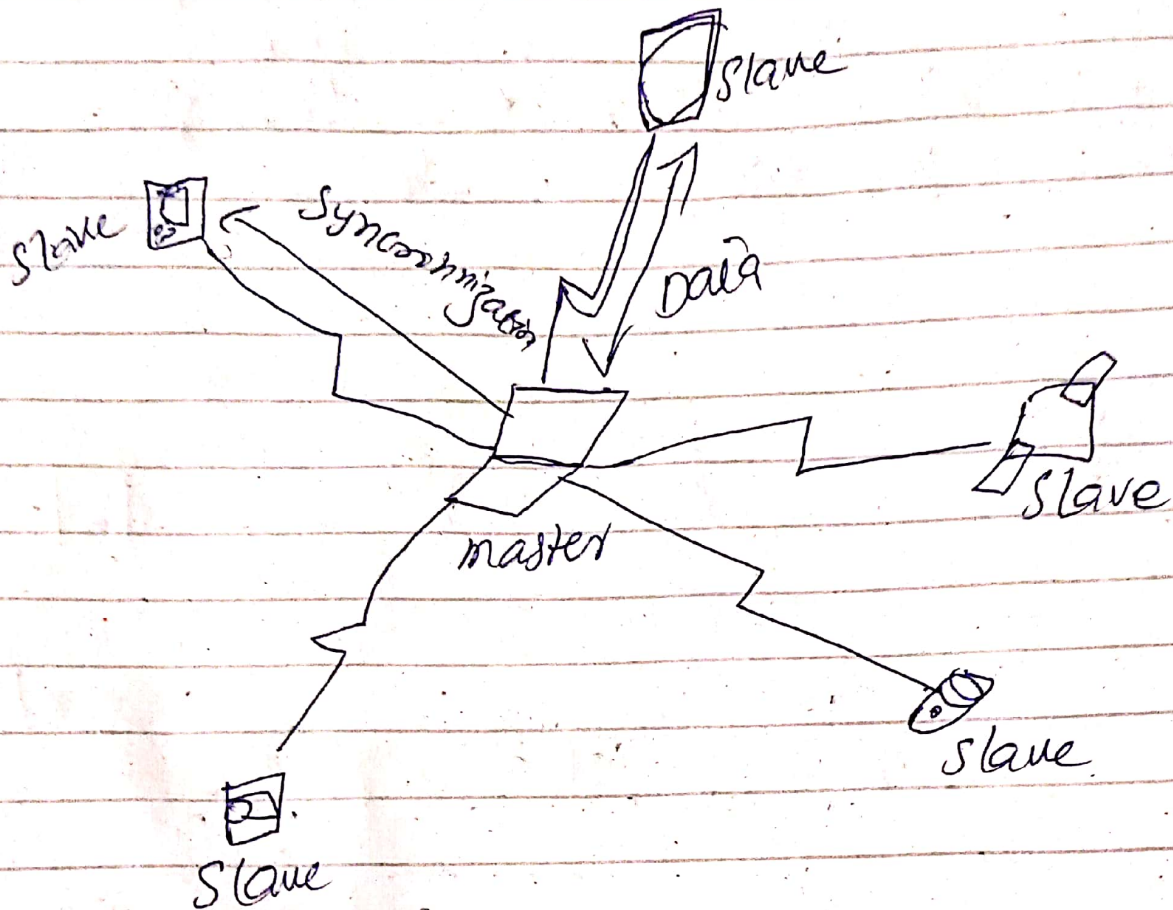 Slave
Slave
Syncronization
Data
Slave
master
Slave
Slave